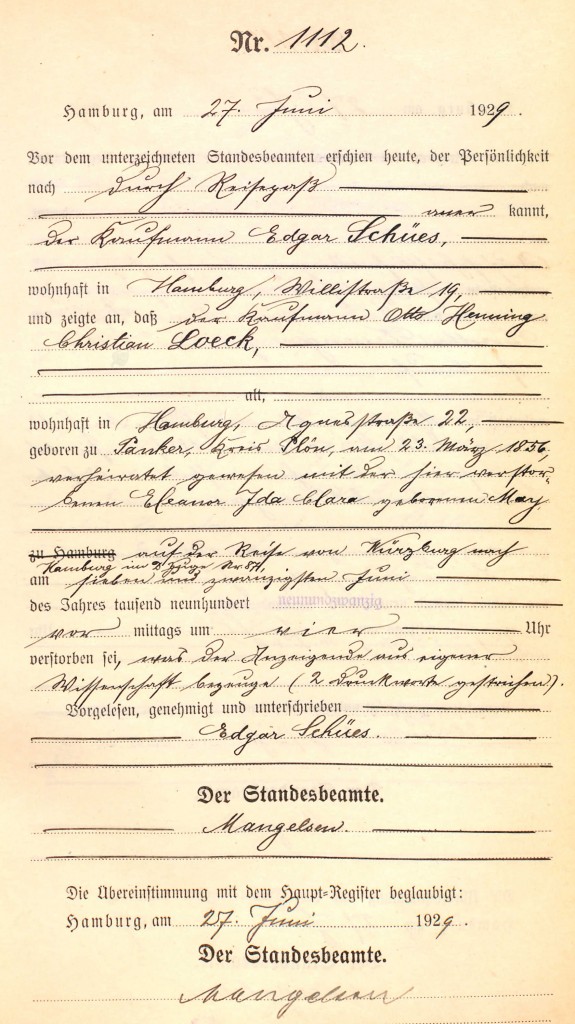 Nr. 1112.
Hamburg, am 27. Juni 1929.
Vor dem unterzeichneten Standesbeamten erschien heute, der Persönlichkeit
nach durch Reisepaß
aner kannt,
der Kaufmann Edgar Schües,
wohnhaft in Hamburg, Willistraße 19,
und zeigte an, daß der Kaufmann Otto Henning
Christian Loeck,
alt,
wohnhaft in Hamburg, Agnesstraße 22,
geboren zu Panker, Kreis Plön, am 23. März 1856,
verheiratet gewesen mit der hier verstor-
benen Eleanor Ida Clara geborenen May
zu Hamburg auf der Reise von Würzburg nach
Hamburg im D. Zuge Nr 87,
am sieben und zwanzigsten Juni
des Jahres tausend neunhundert neunundzwanzig
vor mittags um vier Uhr
verstorben sei, was der Anzeigende aus eigener
Wissenschaft bezeuge (2 Druckworte gestrichen).
Vorgelesen, genehmigt und unterschrieben
Edgar Schües.
Der Standesbeamte.
Mangelsen.
Die Übereinstimmung mit dem Haupt-Register beglaubigt:
Hamburg, am 27. Juni 1929.
Der Standesbeamte.
Mangelsen